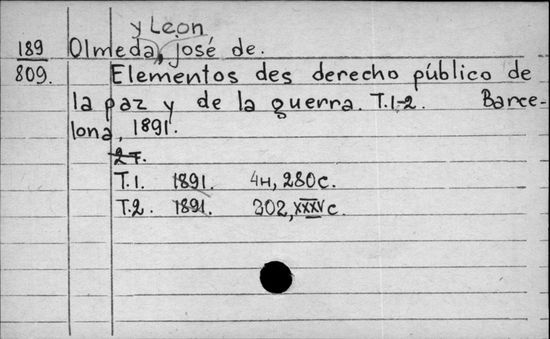 y León
189 Olmeda, José de.
809. Elementos des derecho público de
la paz y de la guerra. T.1-2. Barce-
lona, 1891.
2т.
T.1. 1891. 4н, 280с.
T.2. 1891. 302, XXXV с.